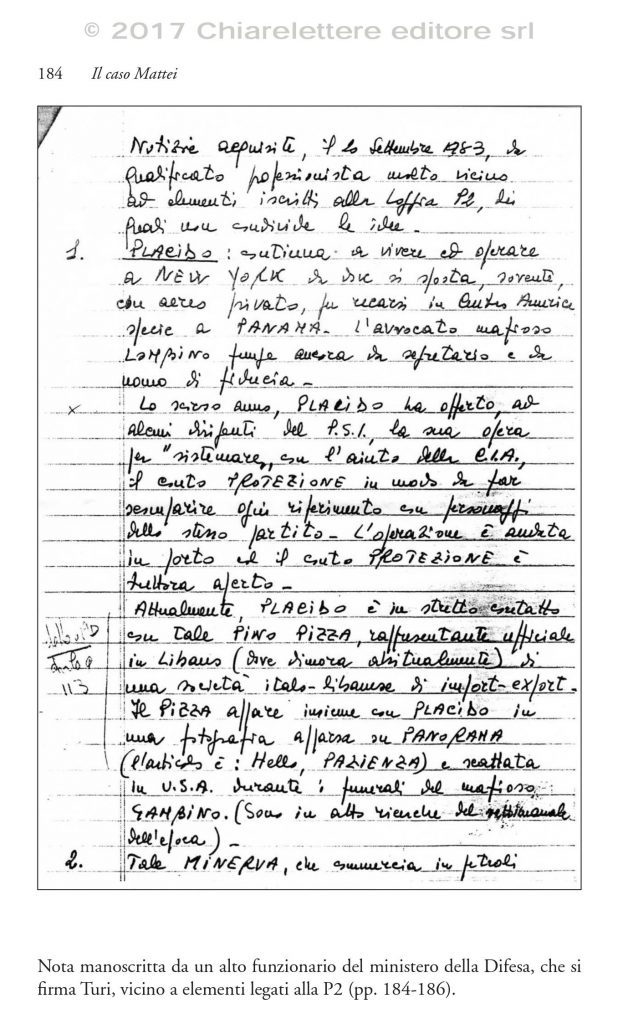 © 2017 Chiarelettere editore srl
184 Il caso Mattei
Notizie acquisite, il 20 Settembre 1983, da
qualificato professionista molto vicino
ad elementi iscritti alla Loggia P2, dei
quali non condivide le idee.
1. PLACIDO: continua a vivere ed operare
a NEW YORK da dove si sposta, sovente,
con aereo privato, per recarsi in Centro America
specie a PANAMA. L'avvocato mafioso
LOMBINO funge ancora da segretario e da
uomo di fiducia -
x Lo scorso anno, PLACIDO ha offerto, ad
alcuni dirigenti del P.S.I., la sua opera
per "sistemare", con l'aiuto della C.I.A.,
il conto PROTEZIONE in modo da far
scomparire ogni riferimento con personaggi
dello stesso partito - L'operazione è andata
in porto ed il conto PROTEZIONE è
tuttora aperto -
Attualmente, PLACIDO è in stretto contatto
con tale PINO PIZZA, rappresentante ufficiale
in Libano (dove dimora abitualmente) di
113
una società italo-libanese di import-export.
Il PIZZA appare insieme con PLACIDO in
una fotografia apparsa su PANORAMA
(l'articolo è: Hello, PAZIENZA) e scattata
in U.S.A. durante i funerali del mafioso
GAMBINO. (Sono in atto ricerche del settimanale
dell'epoca) -
2. Tale MINERVA, che commercia in petroli
Nota manoscritta da un alto funzionario del ministero della Difesa, che si
firma Turi, vicino a elementi legati alla P2 (pp. 184-186).